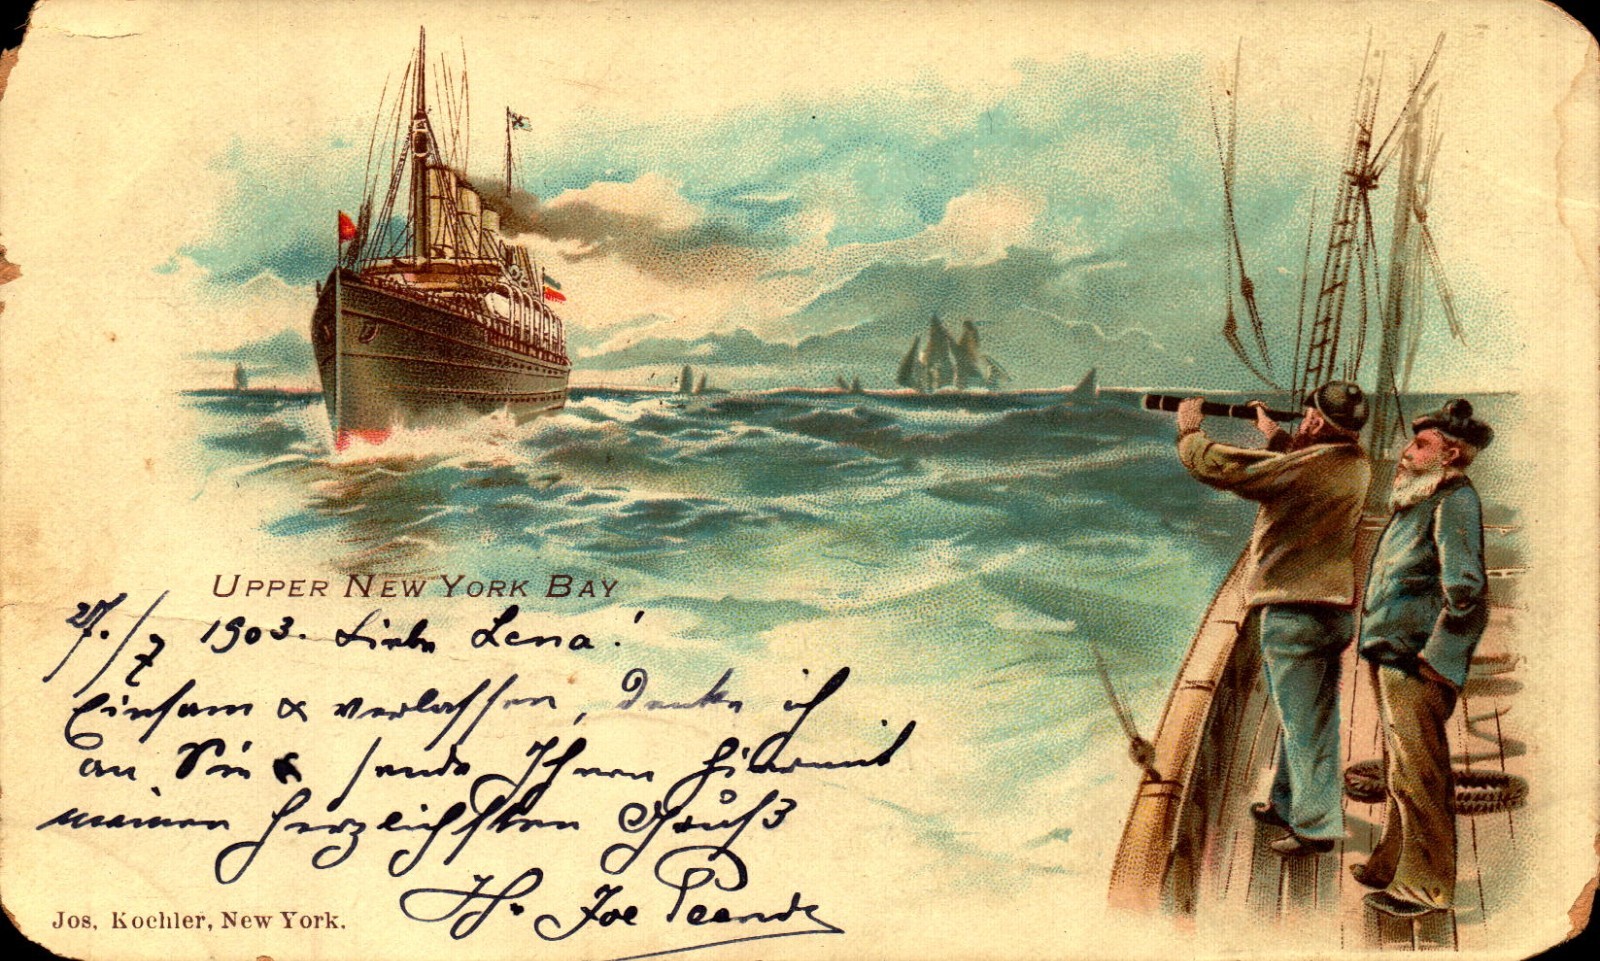 UPPER NEW YORK BAY
27./7 1903. Liebe Lena!
Einsam & verlassen, denke ich
an Sie & sende Ihnen hiermit
meinen herzlichsten Gruß
Joe
Jos. Koehler, New York.